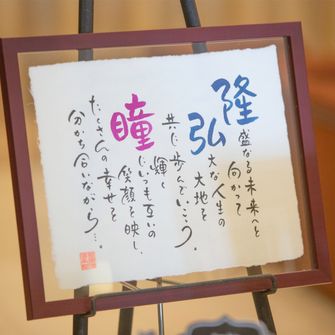 隆
盛なる未来へと
向かって
弘
大な人生の
大地を
共に歩んでいこう。
瞳
輝く
じいつも互いの
笑顔を映し、
たくさんの幸せを
分かち合いながら…。